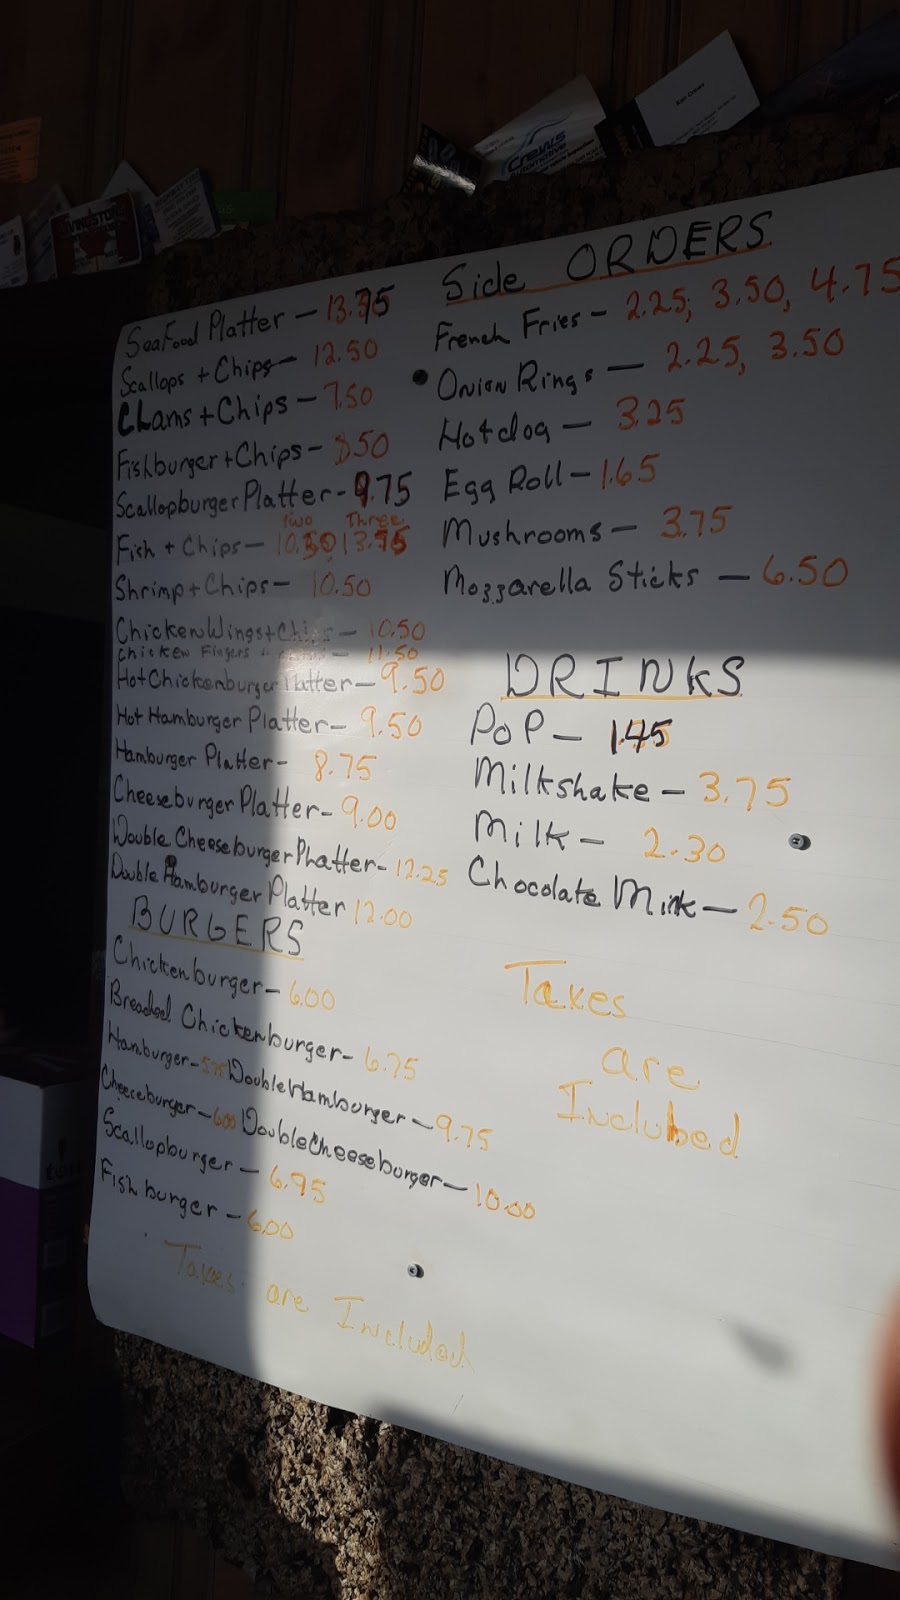 Crews
AUTOMOTIVE
SeaFood Platter - 13.75
Scallops + Chips - 12.50
CLams + Chips - 7.50
Fishburger + Chips - 8.50
Scallopburger Platter - 9.75
Two Three
Fish + Chips - 10.50 13.75
Shrimp + Chips - 10.50
Chicken Wings + Chips - 10.50
Chicken Fingers + Chips - 11.50
Hot Chickenburger Platter - 9.50
Hot Hamburger Platter - 9.50
Hamburger Platter - 8.75
Cheeseburger Platter - 9.00
Double Cheeseburger Phatter - 12.25
Double Hamburger Platter 12.00
BURGERS
Chickenburger - 6.00
Breaded Chickenburger - 6.75
Hamburger - 5.75 Double Hamburger - 9.75
Cheeceburger - 6.00 Double Cheeseburger - 10.00
Scallopburger - 6.95
Fishburger - 6.00
Taxes are Included
Side ORDERS
French Fries - 2.25, 3.50, 4.75
Onion Rings - 2.25, 3.50
Hotdog - 3.25
Egg Roll - 1.65
Mushrooms - 3.75
Mozzarella Sticks - 6.50
DRINKS
POP - 1.45
Milkshake - 3.75
Milk - 2.30
Chocolate Milk - 2.50
Taxes
are
Included